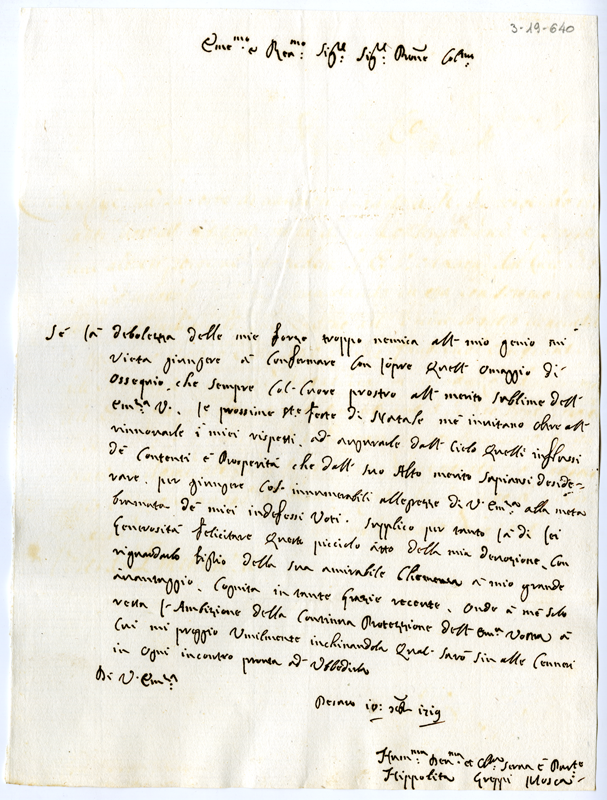 3-19-640
Eme.mo e Rev.mo Sig.r Sig.r Prone Col.mo
Sé la debolezza delle mie forze troppo nemica all mio genio mi
vieta giungere à Confermare con l'opre quell Omaggio di
Ossequio, che sempre col Cuore prostro all merito sublime dell
Em.za V. le prossime Ste feste di Natale mé invitano oltre all
rinnovarle i miei rispetti, ad augurarle dall Cielo quelli influssi
dé Contenti é Prosperità che dall suo Alto merito sapiansi deside-
rare, per giungere Cosi innumerabili allegrezze di V. Em.za alla meta
bramata dé miei indefessi Voti. Supplico per tanto la di lei
Generosità felicitare questo picciolo atto della mia devozione, con
riguardarlo figlio della sua amirabile Clemenza à mio grande
avantaggio, Cognita in tante Grazie recente, Onde à mé solo
resta l'Ambizione della Continua Protezzione dell Em.za Vostra à
Cui mi preggio Umilmente inchinandola qual sarò sin alle Ceneri
in Ogni incontro pronta ad Ubbidirla
Di V. Em.za
Pesaro 10: Xbre 1719
Hum.ma Dev.ma et Obl.ma Serva é Parte
Hippolita Greppi Mosca